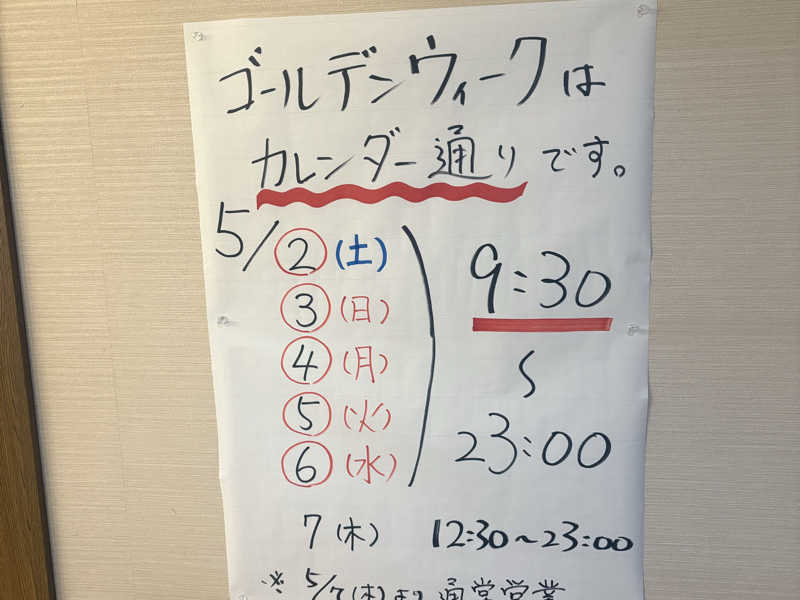 ゴールデンウィークは
カレンダー通りです。
5/2(土)
3(日)
4(月)
5(火)
6(水)
9:30
〜
23:00
7(木) 12:30~23:00
※5/7(木)より通常営業